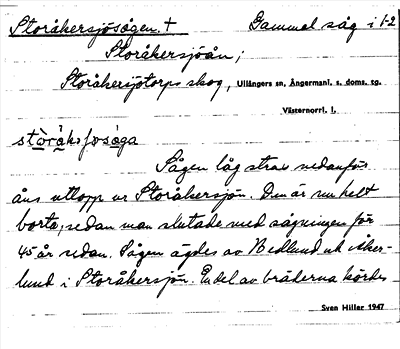 Storåkersjösågen. † Gammal såg i 1-2
Storåkersjöån,
Storåkersjötorps skog, Ullångers sn, Ångermanl. s. doms. tg.
Västernorrl. l.
stòråksjosåga
Sågen låg strax nedanför
åns utlopp ur Storåkersjön. Den är nu helt
borta, sedan man slutade med sågningen för
45 år sedan. Sågen ägdes av Wedlund och Åker-
lund i Storåkersjön. En del av bräderna kördes
Sven Hiller 1947